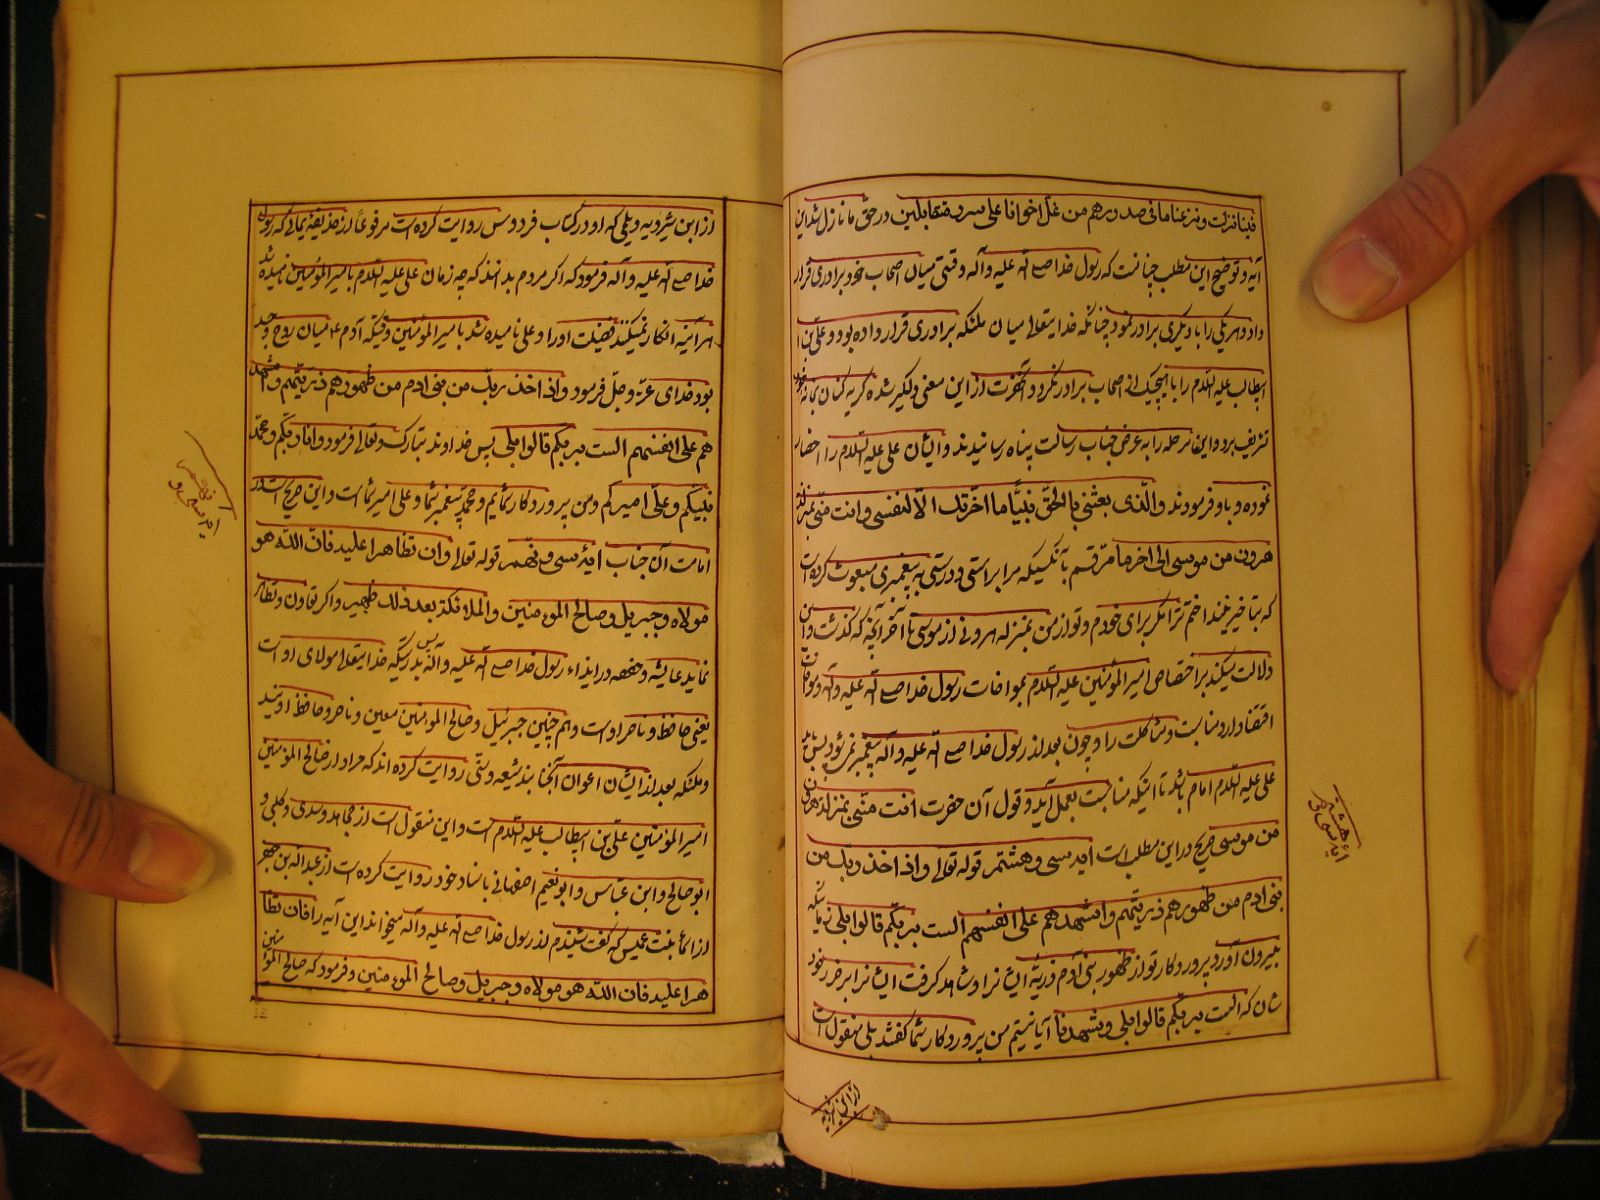 فینا نزلت و نزعنا ما فی صدورهم من غل اخوانا علی سرر متقابلین در حق ما نازل شد این
آیه و توضیح این مطلب چنانست که رسول خدا صلی الله علیه و آله وقتی میان اصحاب خود برادری قرار
داد و هر یکی را با دیگری برادر نمود چنانکه خدایتعالی میان ملئکه برادری قرار داده بود و علی بن ا
بیطالب علیه السلام را با هیچیک از اصحاب برادر نکرد و آنحضرت از این معنی دلگیر شده گریه کنان بخانه خود
تشریف برد و این مرحله را به عرض جناب رسالت پناه رسانیدند و ایشان علی علیه السلام را احضار
نموده و باو فرمودند والذی بعثنی بالحق نبیّا ما اخّرتک الّا لنفسی و انت منّی بمنزلة
هرون من موسی الی اخر ما مرّ قسم بآنکسیکه مرا براستی و درستی به پیغمبری مبعوث کرده است
که بتاخیر نینداختم ترا مگر برای خودم و تو از من بمنزله هرونی از موسی تا آخر آنچه که گذشت و این
دلالت میکند بر اختصاص امیر المؤمنین علیه السلام بمواخات رسول خدا صلی الله علیه و آله و مواخات
اقتضا دارد مناسبت و مشاکلت را و چون بعد از رسول خدا صلی الله علیه و آله پیغمبر نمیشود پس باید
علی علیه السلام امام باشد تا اینکه مناسبت بعمل آید و قول آن حضرت انت منّی بمنزلة هرون
من موسی صریح در این مطلب است آیه سی و هشتم قوله تعالی و اذ اخذ ربک من
بنی ادم من ظهورهم ذریتهم و اشهدهم علی انفسهم الست بربکم قالوا بلی زمانیکه
بیرون آورد پروردگار تو از ظهور بنی آدم ذریّه ایشانرا و شاهد گرفت ایشانرا بر خود
شان که الست بربکم قالوا بلی و شهدنا آیا نیستم من پروردگار شما گفتند بلی منقول است
آیه سی و هشتم
از ابن شیرویه
از ابن شیرویه دیلمی که او در کتاب فردوس روایت کرده است مرفوعا از حذیفه یمانی که رسول
خدا صلی الله علیه و آله فرمود که اگر مردم بدانند که چه زمان علی علیه السلام بامیر المؤمنین نامیده شد
هر آینه انکار نمیکنند فضیلت او را و علی نامیده شد بامیر المؤمنین وقتیکه آدم ع میان روح و جسد
بود خدای عزّ و جلّ فرمود و اذ اخذ ربک من بنی ادم من ظهورهم ذریتهم و اشهد
هم علی انفسهم الست بربکم قالوا بلی پس خداوند تبارک و تعالی فرمود و انا ربکم و محمّد
نبیکم و علیّ امیرکم و من پروردگار شمایم و محمد پیغمبر شما و علی امیر شما است و این صریح است در
امامت آن جناب آیه سی و نهم قوله تعالی و ان تظاهرا علیه فان الله هو
مولاه و جبریل و صالح المؤمنین و الملائکة بعد ذلک ظهیر و اگر تعاون و تظاهر
نماید عایشه و حفصه در ایذاء رسول خدا صلی الله علیه و آله پس بدرستیکه خدایتعالی مولای او است
یعنی حافظ و ناصر او است و هم چنین جبرئیل و صالح المؤمنین معین و ناصر و حافظ اویند
و ملئکه بعد از ایشان اعوان آنجنابند شیعه و سنّی روایت کرده اند که مراد از صالح المؤمنین
امیر المؤمنین علی بن ابیطالب علیه السلام است و این منقول است از مجاهد و سدی و کلبی و
ابو صالح و ابن عباس و ابو نعیم اصفهانی باسناد خود روایت کرده است از عبدالله بن جعفر
از اسماء بنت عمیس که گفت شنیدم از رسول خدا صلی الله علیه و آله میخواند این آیه را فان تظا
هرا علیه فان الله هو مولاه و جبریل و صالح المؤمنین و فرمود که صالح المؤمنین
آیه سی و نهم